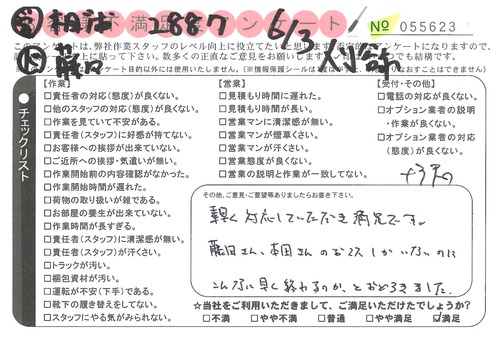 お客様不満足度アンケート
2887
6/3
№ 055623
このアンケートは、弊社作業スタッフのレベル向上に役立てたいと思います。
アンケート目的以外には使用いたしません。(※情報保護シールは
チェックリスト
【作業】
□責任者の対応(態度)が良くない。
□他のスタッフの対応(態度)が良くない。
□作業を見ていて不安がある。
□責任者(スタッフ)に好感が持てない。
□お客様への挨拶が出来ていない。
□ご近所への挨拶・気遣いが無い。
□作業開始前の内容確認がなかった。
□作業開始時間が遅れた。
□荷物の取り扱いが雑である。
□お部屋の養生が出来ていない。
□作業時間が長すぎる。
□責任者(スタッフ)に清潔感が無い。
□責任者(スタッフ)が汗くさい。
□トラックが汚い。
□梱包資材が汚い。
□運転が不安(下手)である。
□靴下の履き替えをしてない。
□スタッフにやる気がみられない。
【営業】
□見積もり時間に遅れた。
□見積もり時間が長い。
□営業マンに清潔感が無い。
□営業マンが煙草くさい。
□営業マンが汗くさい。
□営業態度が良くない。
□営業の説明と作業が一致してない。
【受付・その他】
□電話の対応が良くない。
□オプション業者の説明
・作業が良くない。
□オプション業者の対応
(態度)が良くない。
その他、ご意見・ご要望等ありましたらお書き下さい。
対応していただき満足です。
藤田さん、本田さんのお2人しかいないのに
こんなに早く終わるのか、とおどろきました。
☆当社をご利用いただきまして、ご満足いただけたでしょうか?
□不満 □やや不満 □普通 □やや満足 ☑満足